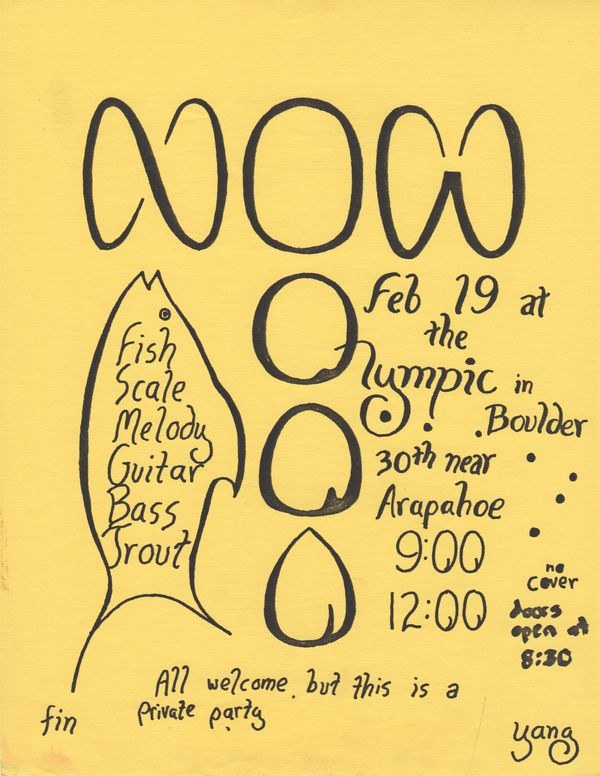 NOW
Feb 19 at
the
Olympic in
Boulder
30th near
Arapahoe
9:00
12:00
no
cover
doors
open at
8:30
Fish
Scale
Melody
Guitar
Bass
Trout
All welcome, but this is a
private party
fin
yang